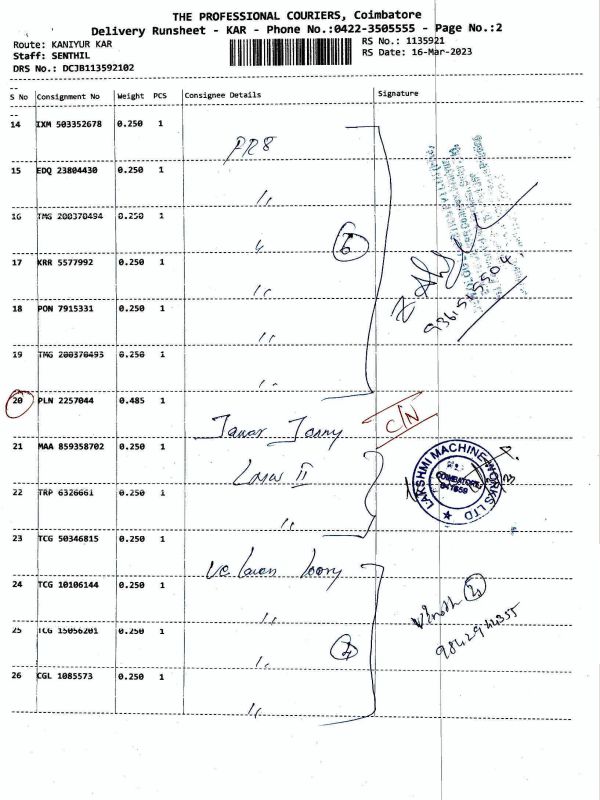 THE PROFESSIONAL COURIERS, Coimbatore
Delivery Runsheet - KAR - Phone No.:0422-3505555 - Page No.:2
Route: KANIYUR KAR
RS No.: 1135921
Staff: SENTHIL
RS Date: 16-Mar-2023
DRS No.: DCJB113592102
S No Consignment No Weight PCS Consignee Details Signature
14 IXM 503352678 0.250 1
PR8
15 EDQ 23804430 0.250 1
,,
16 TMG 200370494 0.250 1
,,
6
17 KRR 5577992 0.250 1
,,
18 PON 7915331 0.250 1
,,
19 TMG 200370493 0.250 1
,,
20 PLN 2257044 0.485 1
C/N
21 MAA 859358702 0.250 1
LMW II
LAKSHMI MACHINE WORKS LTD
COIMBATORE
641659
22 TRP 6326661 0.250 1
,,
23 TCG 50346815 0.250 1
24 TCG 10106144 0.250 1
,,
Vinoth
25 TCG 15056201 0.250 1
,,
26 CGL 1085573 0.250 1
,,